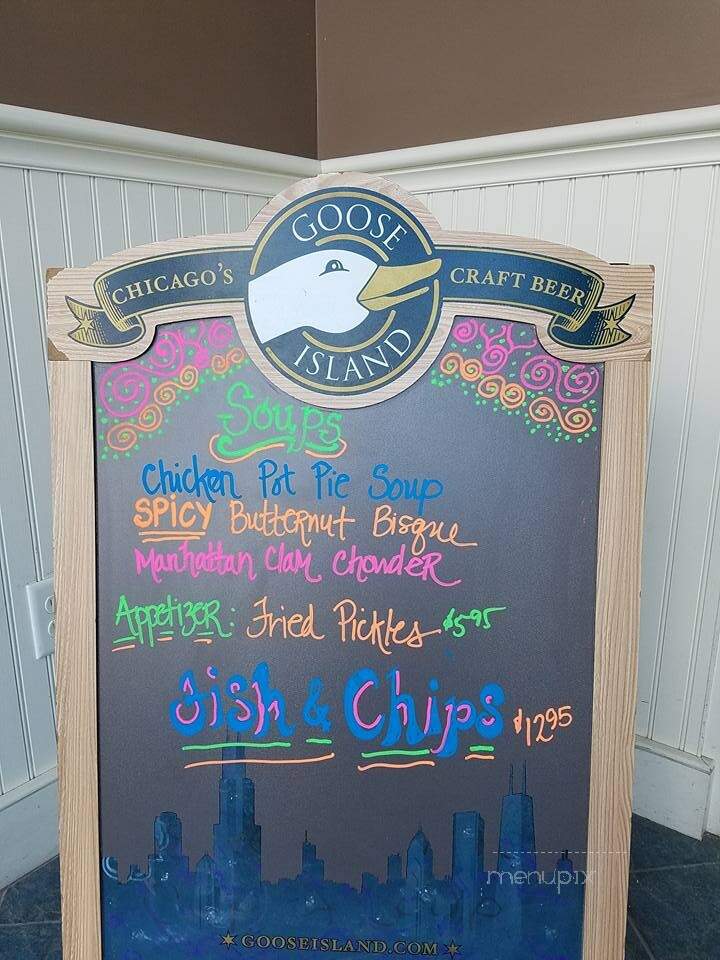 GOOSE
CHICAGO'S
CRAFT BEER
ISLAND
Soups
Chicken Pot Pie Soup
SPICY Butternut Bisque
Manhattan Clam Chowder
Appetizer: Fried Pickles $5.95
Fish & Chips $12.95
menupix
GOOSEISLAND.COM